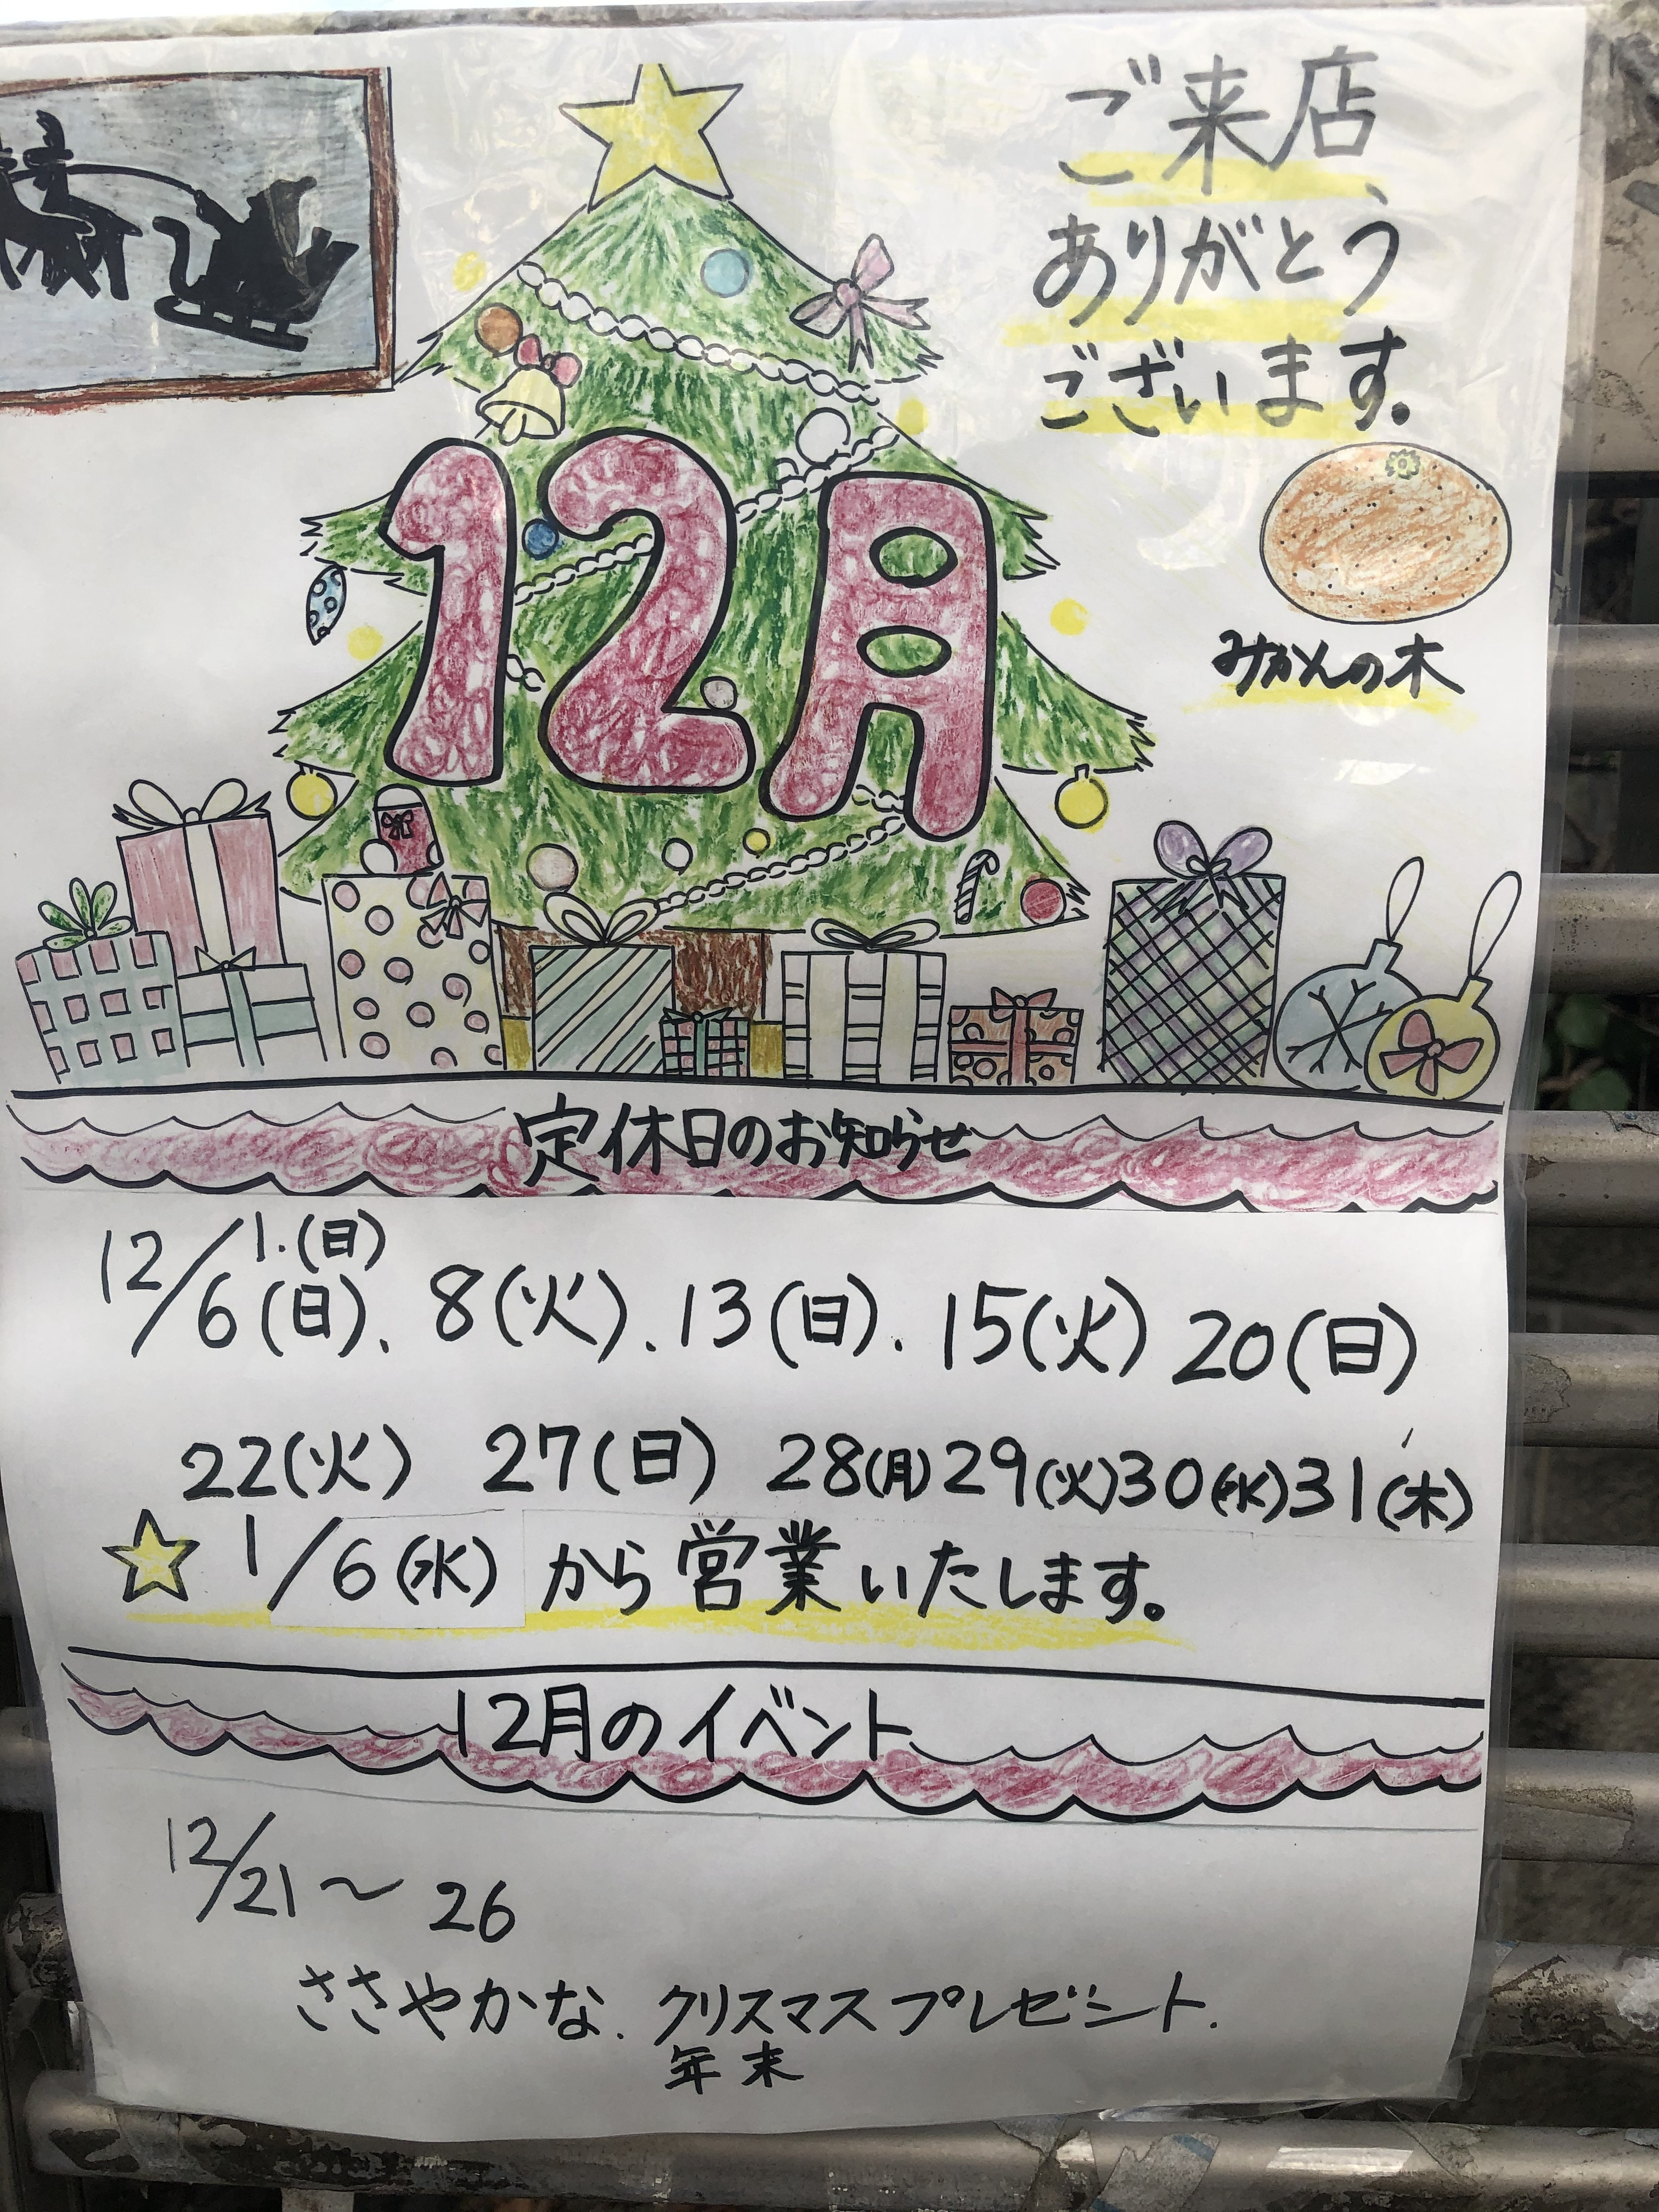 ご来店、
ありがとう
ございます。
みかんの木
12月
定休日のお知らせ
1.(日)
12/6(日). 8(火). 13(日). 15(火) 20(日)
22(火) 27(日) 28(月)29(火)30(水)31(木)
☆ 1/6(水) から営業いたします。
12月のイベント
12/21〜26
ささやかな. クリスマスプレゼント.
年末